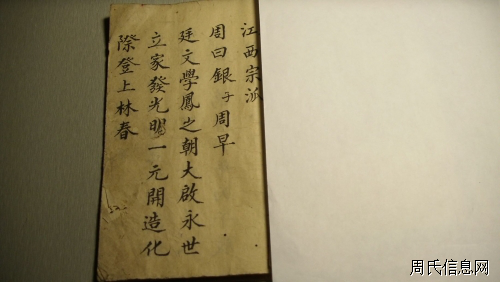 江西宗派
周日銀子周早
廷文學鳳之朝大啟永世
立家發光明一元開造化
際登上林春
周氏信息网